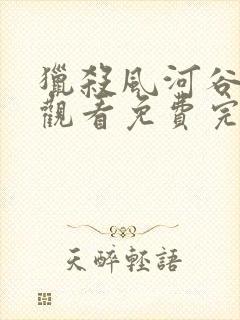 獵殺風河谷
觀看免費完
天醉輕語